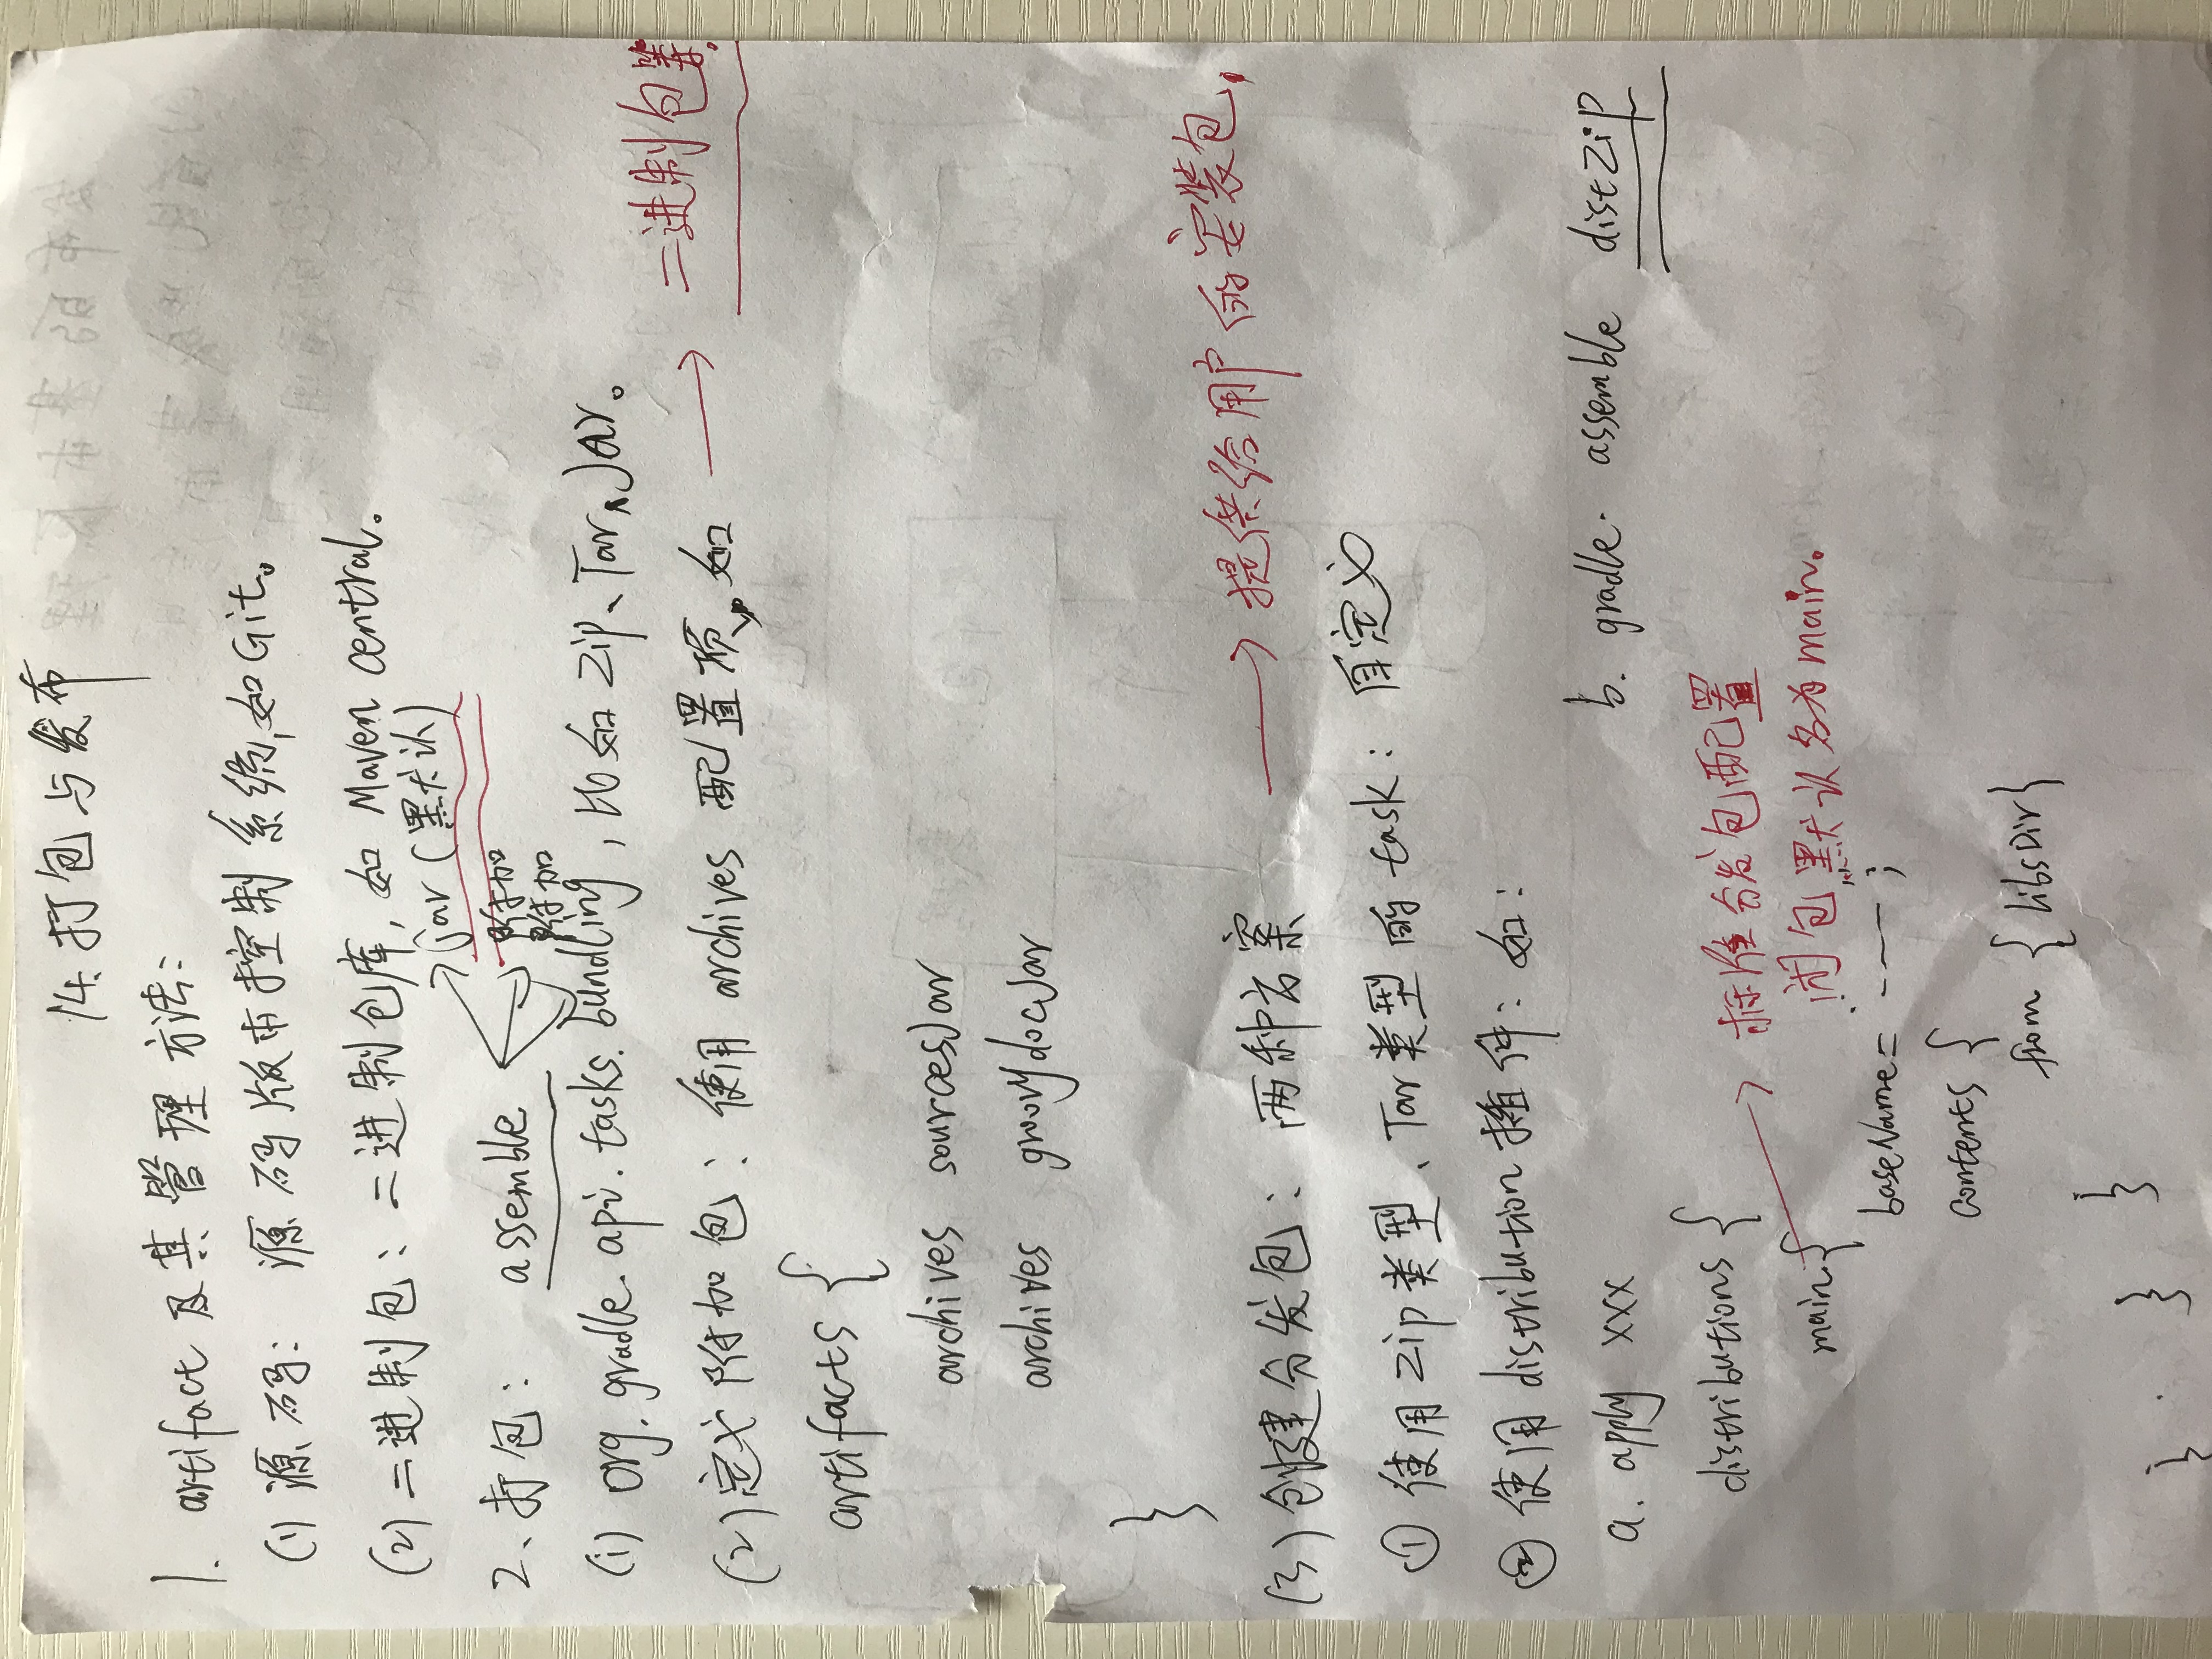 14. 打包与发布
1. artifact 及其管理方法：
(1) 源码： 源码版本控制系统，如Git。
(2) 二进制包：二进制仓库，如 Maven central。
2、打包： assemble
jar (默认)
附加
附加
(1) org.gradle.api.tasks.bundling，比如 Zip、Tar、Jar。
(2) 定义附加包：使用 archives 配置项。如 → 二进制包等。
artifacts {
archives sourcesJar
archives groovydocJar
}
(3) 创建分发包：两种方案 → 提供给用户的安装包，
① 使用 Zip类型、Tar类型的 task：自定义
② 使用 distribution 插件：如：
a. apply xxx
b. gradle. assemble distZip
distributions {
main { → 标准分发包配置
闭包默认名为main。
baseName = ---- ;
contents {
from { libsDir }
}
}
}